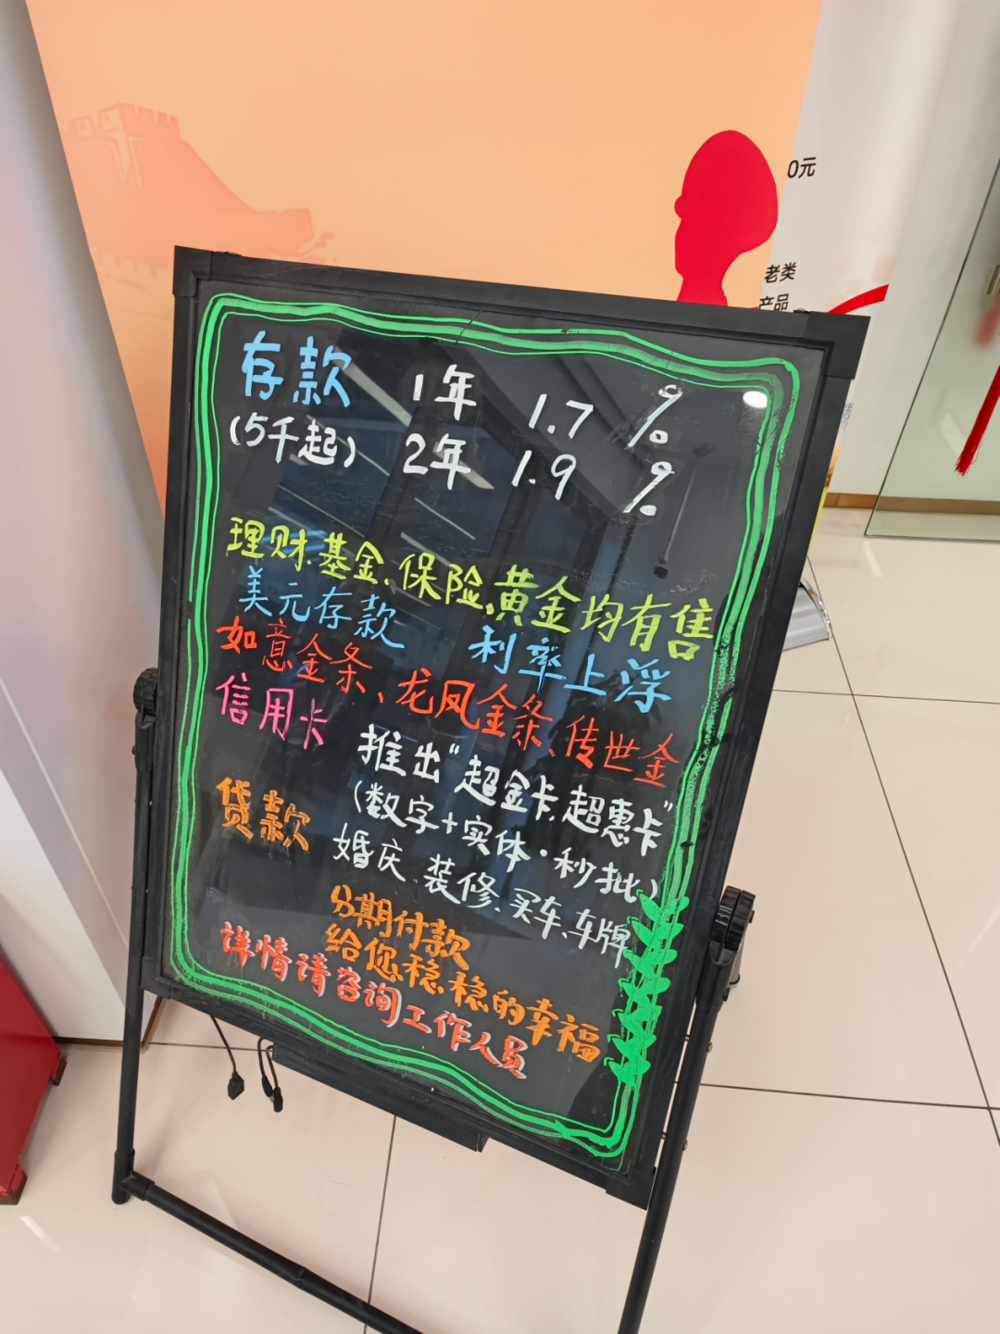 0元
老类
产品
存款 1年 1.7 %
(5千起) 2年 1.9 %
理财、基金、保险、黄金均有售
美元存款 利率上浮
如意金条、龙凤金条、传世金
信用卡 推出“超金卡、超惠卡”
(数字+实体·秒批)
贷款 婚庆、装修、买车、车牌
分期付款
给您稳稳的幸福
详情请咨询工作人员